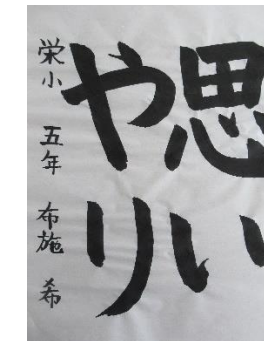 思い
やり
栄小 五年 布施 希